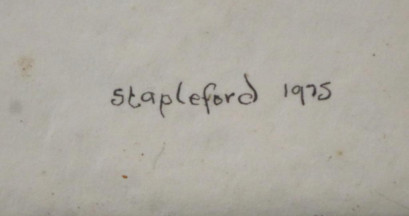 Stapleford 1975